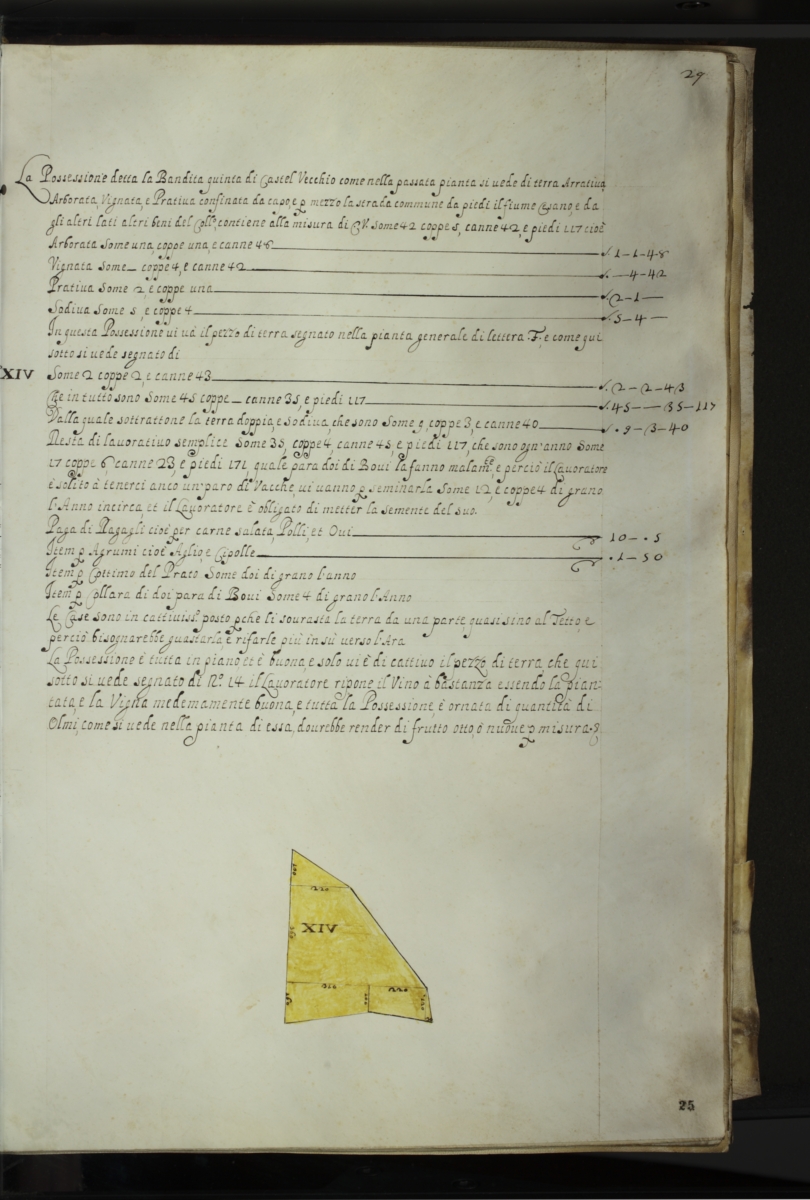 29
La Possessione detta la Bandita quinta di Castel Vecchio come nella passata pianta si uede di terra Arratiua
Arborata, Vignata, e Pratiua confinata da capo, e p mezzo la strada commune da piedi il fiume Esano, e da
gli altri lati altri beni del Coll:º contiene alla misura di CV. Some 42 coppe 5, canne 42, e piedi 117 cioè
Arborata Some una, coppe una, e canne 48 1-1-48
Vignata Some — coppe 4, e canne 42 —4-42
Pratiua Some 2, e coppe una 2-1—
Sodiua Some 5, e coppe 4 5-4—
In questa Possessione ui uà il pezzo di terra segnato nella pianta generale di lettera F. e come qui
sotto si uede segnato di
XIV Some 2 coppe 2, e canne 43 2-2-43
Che in tutto sono Some 45 coppe — canne 35, e piedi 117 45——35-117
Dalla quale sottrattone la terra doppia, e Sodiua, che sono Some 9 coppe 3, e canne 40 9-3-40
Resta di lauoratiuo semplice Some 35, coppe 4, canne 45, e piedi 117, che sono ogn'anno Some
17 coppe 6 canne 23, e piedi 171, quale para doi di Boui la fanno malam:te e perciò il Lauoratore
è solito à tenerci anco un paro di Vacche, ui uanno p seminarla Some 12, e coppe 4 di grano
l'Anno incirca et il Lauoratore è obligato di metter la semente del suo.
Paga di Regagli cioè per carne salata, Polli, et Oui 10-.5
Item p Agrumi cioè Aglio, e Cipolle .1-50
Item p Cottimo del Prato Some doi di grano l'anno
Item p Collara di doi para di Boui Some 4 di grano l'Anno
Le Case sono in cattiuiss:º posto pche li sourasta la terra da una parte quasi sino al Tetto, e
perciò bisognarebbe guastarla, e rifarle più in sù uerso l'Ara
La Possessione è tutta in piano et è buona, e solo ui è di cattiuo il pezzo di terra che qui
sotto si uede segnato di Nº. 14 il Lauoratore ripone il Vino à bastanza essendo la pian-
tata, e la Vigna medemamente buona, e tutta la Possessione è ornata di quantità di
Olmi, come si uede nella pianta di essa, dourebbe render di frutto otto, ò nuoue p misura.
220
XIV
220
25